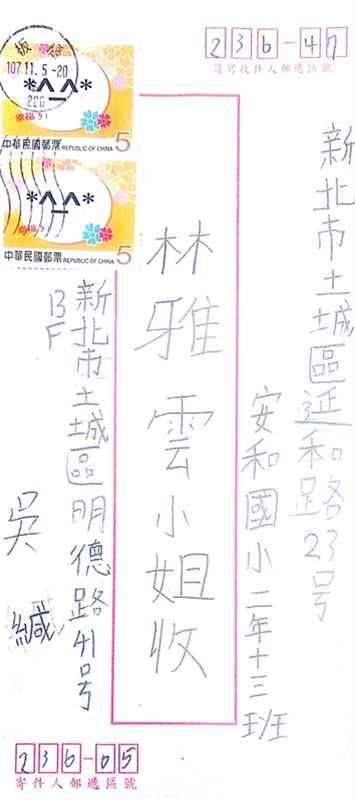 236-47
請寫收件人郵遞區號
新北市土城區延和路23号
安和國小二年十三班
林雅雲小姐收
板橋
107.11.5-20
220
*^_^*
幸福
5
中華民國郵票 REPUBLIC OF CHINA
*^_^*
5
中華民國郵票 REPUBLIC OF CHINA
新北市土城區明德路41号
13F
吳 緘
236-65
寄件人郵遞區號